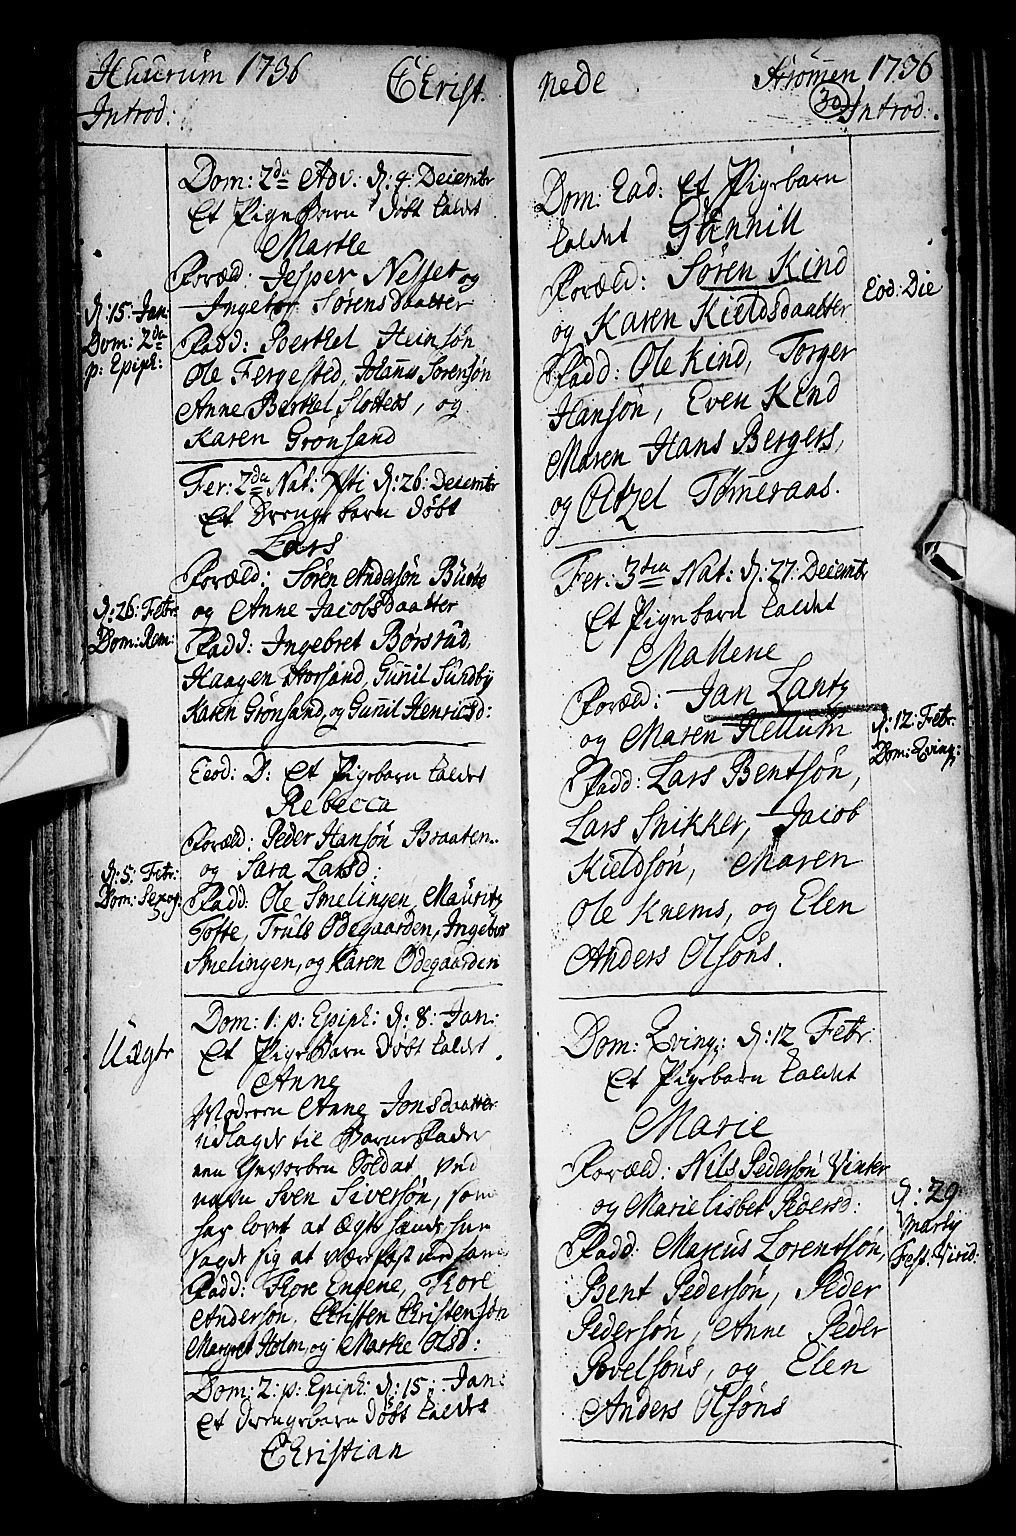 Huurum 1736 Christ.
Introd:
Dom: 2da Adv: d: 4: Decembr
Et Pigebarn døbt kaldet
Marthe
Foræld: Jesper Nesset og
Ingebor Sørensdaatter
d: 15: Jan:
Dom: 2da
p: Epiph:
Fadd: Berthel Heinsøn
Ole Fergested, Johans Sørensøn
Anne Berthel Slottets, og
Karen Grønsand
Fer: 2da Nat: Xsti d: 26: Decembr
Et Drengebarn døbt
Lars
Foræld: Søren Andersøn
og Anne Jacobsdaatter
d: 26: Febr:
Dom: Rem:
Fadd: Ingebret Børstad,
Haagen Horsand, Gunil Sundby
Karen Grønsand, og Gunil Henricsd:
Eod: D: Et Pigebarn kaldet
Rebecca
Foræld: Peder Hansøn Braaten
og Sara Larsd:
d: 5: Febr:
Dom: Sexag:
Fadd: Ole Smelingen, Mauritz
Tofte, Truls Ødegaarden, Ingebor
Smelingen, og Karen Ødegaarden
Dom: 1: p: Epiph: d: 8: Jan:
Uægte
Et Pigebarn døbt kaldet
Anne
Moderen Anne Jonsdaatter
udlagde til Barnefader
en Soldat, ved
nafn Sven Siversøn, som
har lovet at ægte hende, hun
sagde sig at være fæst ved ham
Fadd: Thore Engene, Thore
Andersøn, Christen Christensøn
Margret Holm, og Marthe Olsd:
Dom: 2: p: Epiph: d: 15: Jan:
Et Drengebarn døbt kaldet
Christian
nede Strømmen 1736
30
Introd:
Dom: Ead: Et Pigebarn
kaldet Gunnill
Foræld: Søren Kind
Eod: Die
og Karen Kieldsdaatter
Fadd: Ole Kind, Torger
Hansøn, Even Kind
Maren Hans Bergers,
og Aitzel Tømeraas.
Fer: 3tia Nat: d: 27: Decembr
Et Pigebarn kaldet
Mallene
Foræld: Jan Lantz
og Maren Hellum
d: 12: Febr:
Dom: Qving:
Fadd: Lars Bentsøn,
Lars Snikker, Jacob
Kieldsøn, Maren
Ole Knems, og Elen
Anders Olsøns.
Dom: Qving: d: 12 Febr:
Et Pigebarn kaldet
Marie
Foræld: Nils Pedersøn Vinter
og Marie lisbet Pedersd:
d: 29
Martij
Fest: Virid:
Fadd: Marcus Lorentsøn,
Bent Pedersøn, Peder
Pedersøn, Anne Peder
Povelsøns, og Elen
Anders Olsøns